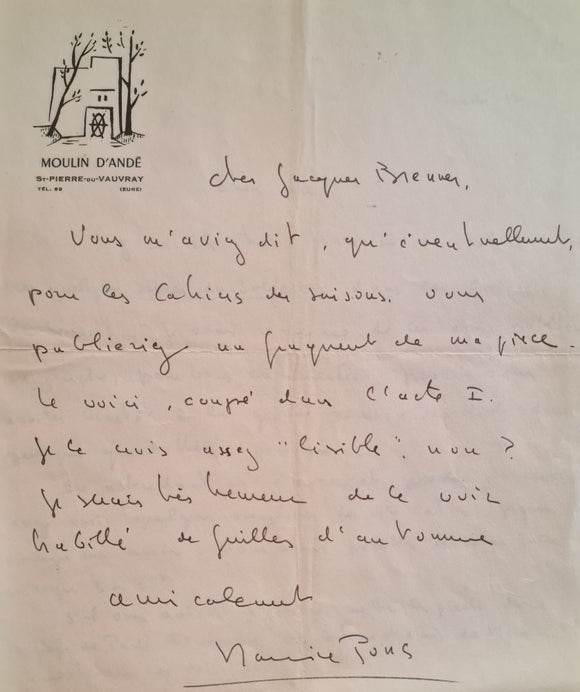 MOULIN D'ANDÉ
ST-PIERRE-DU-VAUVRAY
TÉL. 89 (EURE)
Cher Jacques Brenner,
Vous m'aviez dit, qu'éventuellement,
pour les Cahiers des saisons, vous
publieriez un fragment de ma pièce.
Le voici, coupé dans l'acte I.
Je le crois assez "lisible", non ?
Je serais très heureux de le voir
habillé de feuilles d'automne
amicalement
Maurice Pons